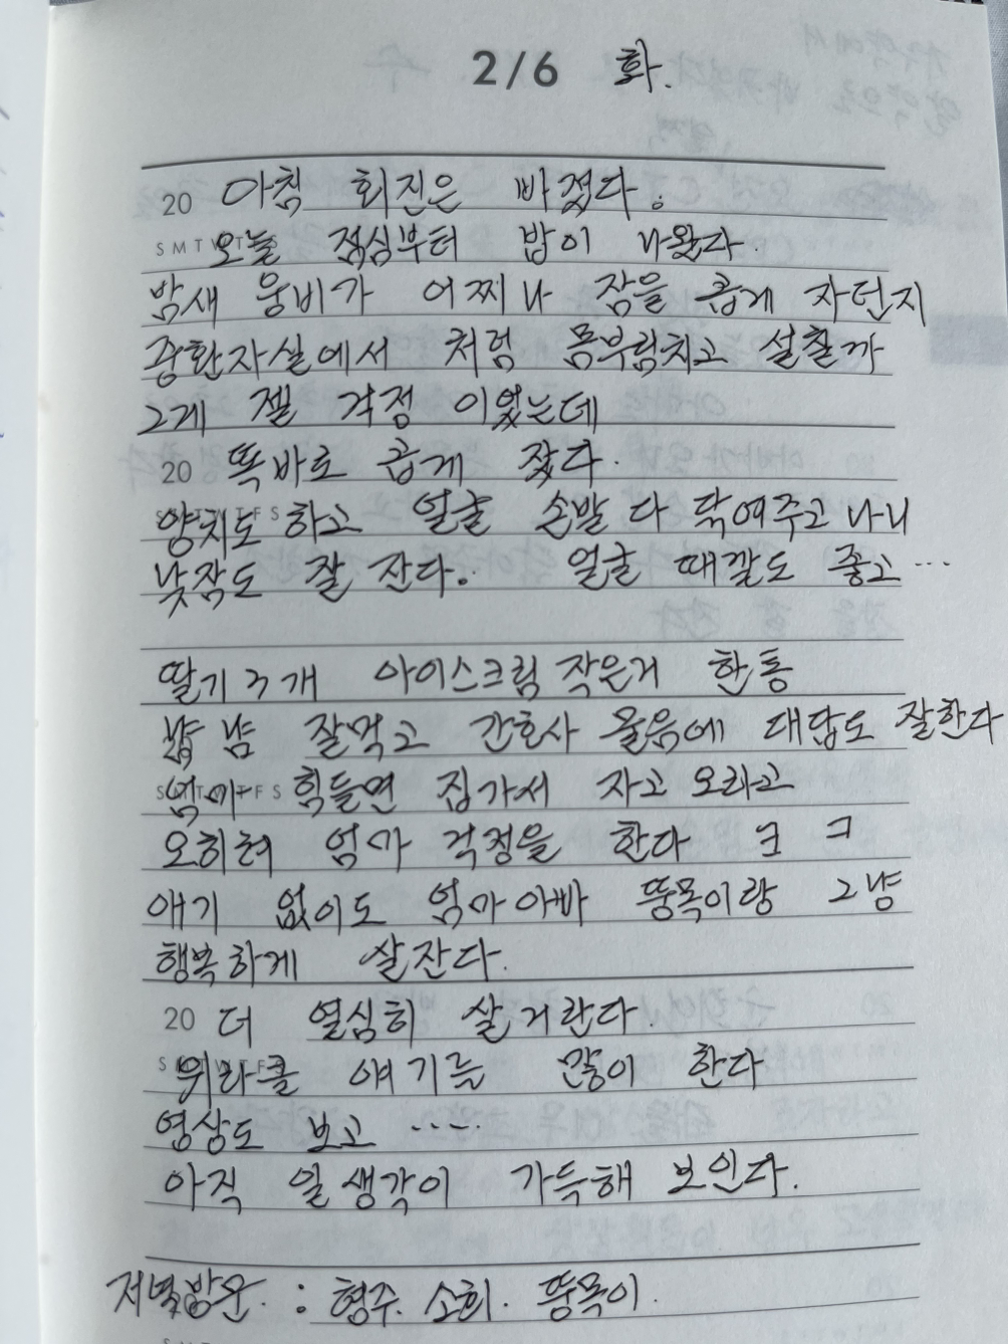 2/6 화.
20 아침 회진은 바쁬다.
S M T W T F S 오늘 점심부터 밥이 나왔다.
밤새 웅비가 어찌나 잠을 곱게 자던지
중환자실에서 처럼 몸부림치고 설칠까
그게 젤 걱정 이었는데
20 똑바로 곱게 잤다.
S M T W T F S 양치도 하고 얼굴 손발 다 닦여주고 나니
낮잠도 잘 잔다. 얼굴 때깔도 좋고...
딸기 3개 아이스크림 작은거 한통
냠냠 잘먹고 간호사 물음에 대답도 잘한다
S M T W T F S 엄마 힘들면 집가서 자고 오라고
오히려 엄마 걱정을 한다 ㅋ ㅋ
애기 없이도 엄마아빠 뚱목이랑 그냥
행복하게 살잔다.
20 더 열심히 살거란다.
S M T W T F S 위라클 얘기를 많이 한다
영상도 보고 .....
아직 일 생각이 가득해 보인다.
저녁방문. : 형주. 소희. 뚱목이.